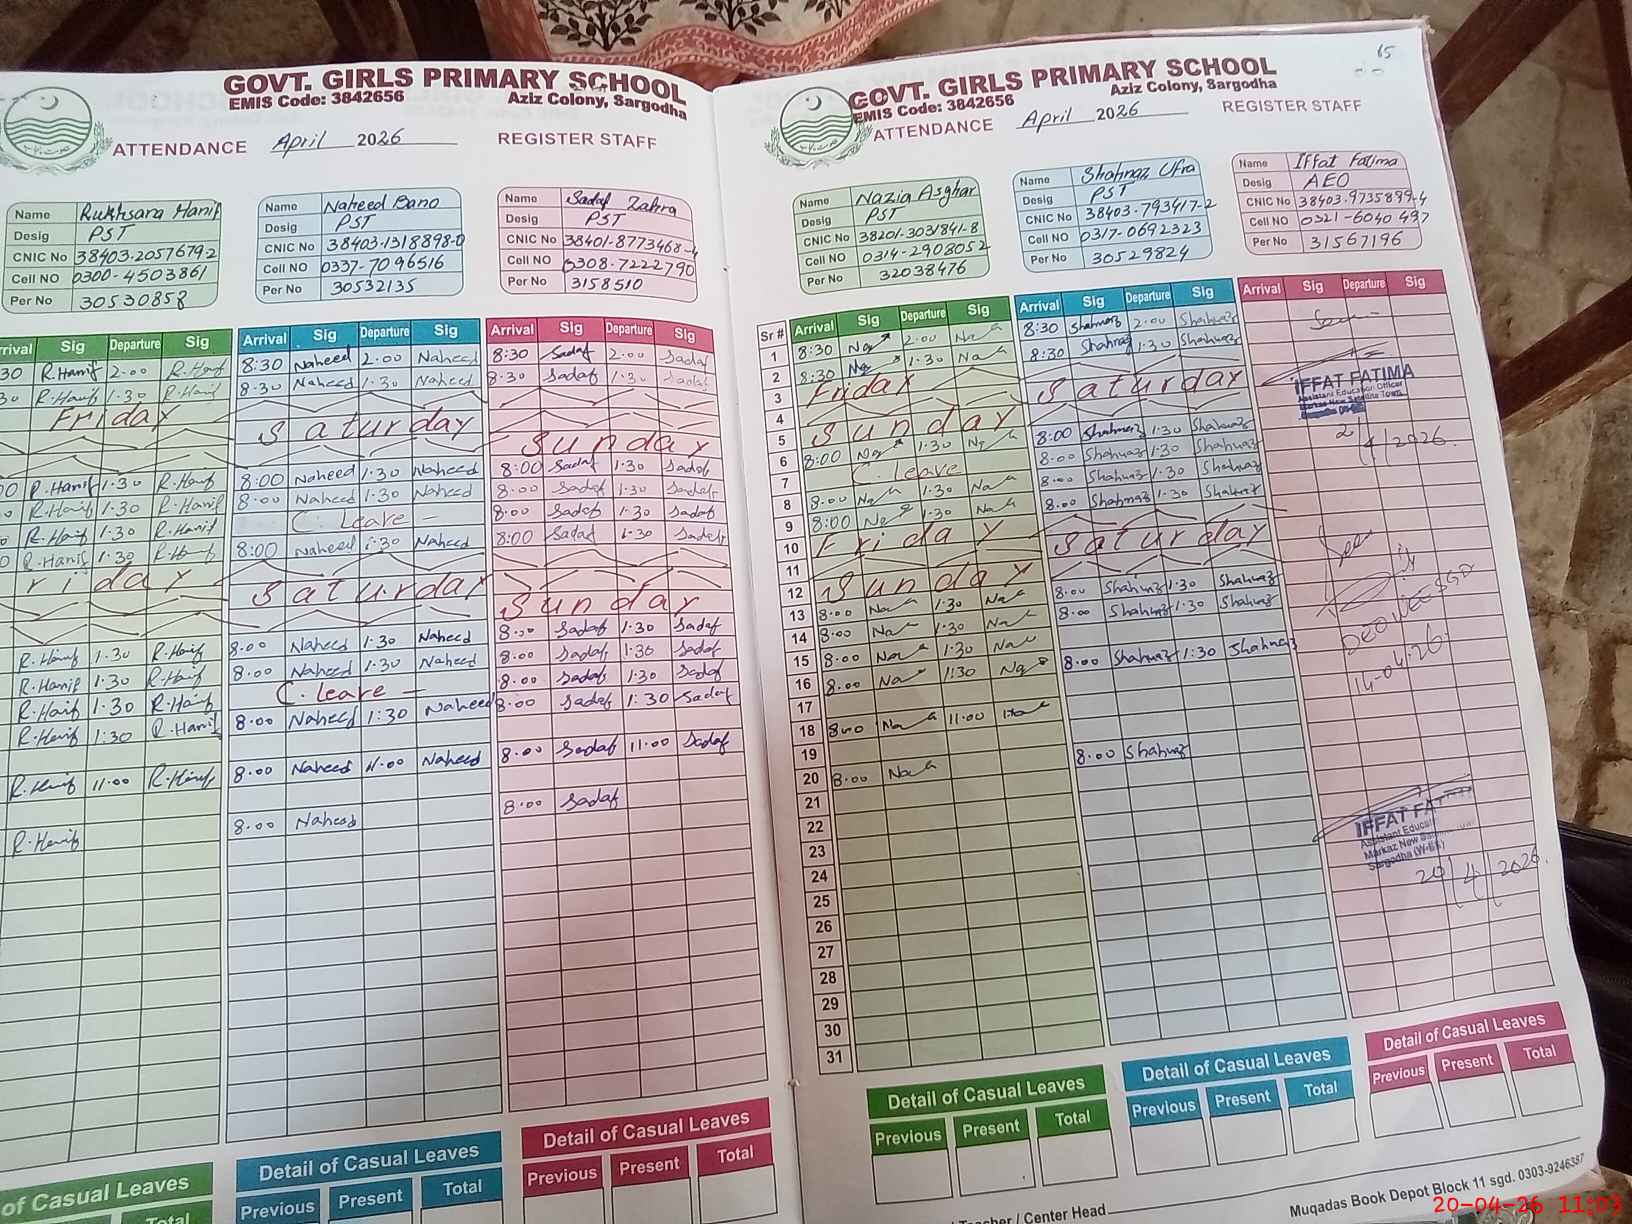 GOVT. GIRLS PRIMARY SCHOOL
EMIS Code: 3842656 Aziz Colony, Sargodha
ATTENDANCE April 2026 REGISTER STAFF
Name Rukhsana Hanif
Desig PST
CNIC No 38403-2057679-2
Cell NO 0300-4503861
Per No 30530858
Name Naheed Bano
Desig PST
CNIC No 38403-1318898-0
Cell NO 0337-7096516
Per No 30532135
Name Sadaf Zahra
Desig PST
CNIC No 38401-8773468-4
Cell NO 0308-7222790
Per No 3158510
rrival Sig Departure Sig
30 R.Hanif 2.00 R.Hanif
30 R.Hanif 1.30 R.Hanif
Friday
00 R.Hanif 1.30 R.Hanif
0 R.Hanif 1.30 R.Hanif
0 R.Hanif 1.30 R.Hanif
0 R.Hanif 1.30 R.Hanif
riday
R.Hanif 1.30 R.Hanif
R.Hanif 1.30 R.Hanif
R.Hanif 1.30 R.Hanif
R.Hanif 1:30 R.Hanif
R.Hanif 11.00 R.Hanif
R.Hanif
Arrival Sig Departure Sig
8:30 Naheed 2.00 Naheed
8:30 Naheed 1.30 Naheed
Saturday
8:00 Naheed 1.30 Naheed
8:00 Naheed 1.30 Naheed
C. Leave –
8:00 Naheed 1:30 Naheed
Saturday
8:00 Naheed 1.30 Naheed
8.00 Naheed 1.30 Naheed
C. leave –
8.00 Naheed 1:30 Naheed
8.00 Naheed 11.00 Naheed
8.00 Naheed
Arrival Sig Departure Sig
8:30 Sadaf 2.00 Sadaf
8:30 Sadaf 1.30 Sadaf
Sunday
8:00 Sadaf 1.30 Sadaf
8:00 Sadaf 1.30 Sadaf
8:00 Sadaf 1.30 Sadaf
8:00 Sadaf 1.30 Sadaf
Sunday
8:00 Sadaf 1.30 Sadaf
8.00 Sadaf 1.30 Sadaf
8.00 Sadaf 1.30 Sadaf
8:00 Sadaf 1:30 Sadaf
8.00 Sadaf 11.00 Sadaf
8.00 Sadaf
of Casual Leaves
Total
Detail of Casual Leaves
Previous Present Total
Detail of Casual Leaves
Previous Present Total
65
GOVT. GIRLS PRIMARY SCHOOL
EMIS Code: 3842656 Aziz Colony, Sargodha
ATTENDANCE April 2026 REGISTER STAFF
Name Nazia Asghar
Desig PST
CNIC No 38201-3031841-8
Cell NO 0314-2908052
Per No 32038476
Name Shahnaz Ufra
Desig PST
CNIC No 38403-793417-2
Cell NO 0317-0692323
Per No 30529824
Name Iffat Fatima
Desig AEO
CNIC No 38403-9735899-4
Cell NO 0321-6040497
Per No 31567196
Sr # 1 2 3 4 5 6 7 8 9 10 11 12 13 14 15 16 17 18 19 20 21 22 23 24 25 26 27 28 29 30 31
Arrival Sig Departure Sig
8:30 2.00
8:30 1.30
Friday
Sunday
8:00 1:30
C. leave
8:00 1.30
8:00 1.30
Friday
Sunday
8:00 1.30
8.00 1.30
8.00 1.30
8.00 1:30
8:00 11.00
8.00
Arrival Sig Departure Sig
8:30 Shahnaz 2.00 Shahnaz
8:30 Shahnaz 1.30 Shahnaz
Saturday
8:00 Shahnaz 1.30 Shahnaz
8.00 Shahnaz 1.30 Shahnaz
8:00 Shahnaz 1.30 Shahnaz
8:00 Shahnaz 1.30 Shahnaz
Saturday
8.00 Shahnaz 1.30 Shahnaz
8.00 Shahnaz 1.30 Shahnaz
8.00 Shahnaz 1:30 Shahnaz
8.00 Shahnaz
Arrival Sig Departure Sig
IFFAT FATIMA
Assistant Education Officer
Markaz New Satellite Town
2/4/2026.
14-04-26.
IFFAT FAT
Assistant Educati
Markaz New
Sargodha (W-EE)
20/4/2026.
Detail of Casual Leaves
Previous Present Total
Detail of Casual Leaves
Previous Present Total
Detail of Casual Leaves
Previous Present Total
Teacher / Center Head
Muqadas Book Depot Block 11 sgd. 0303-9246387
20-04-26 11:03